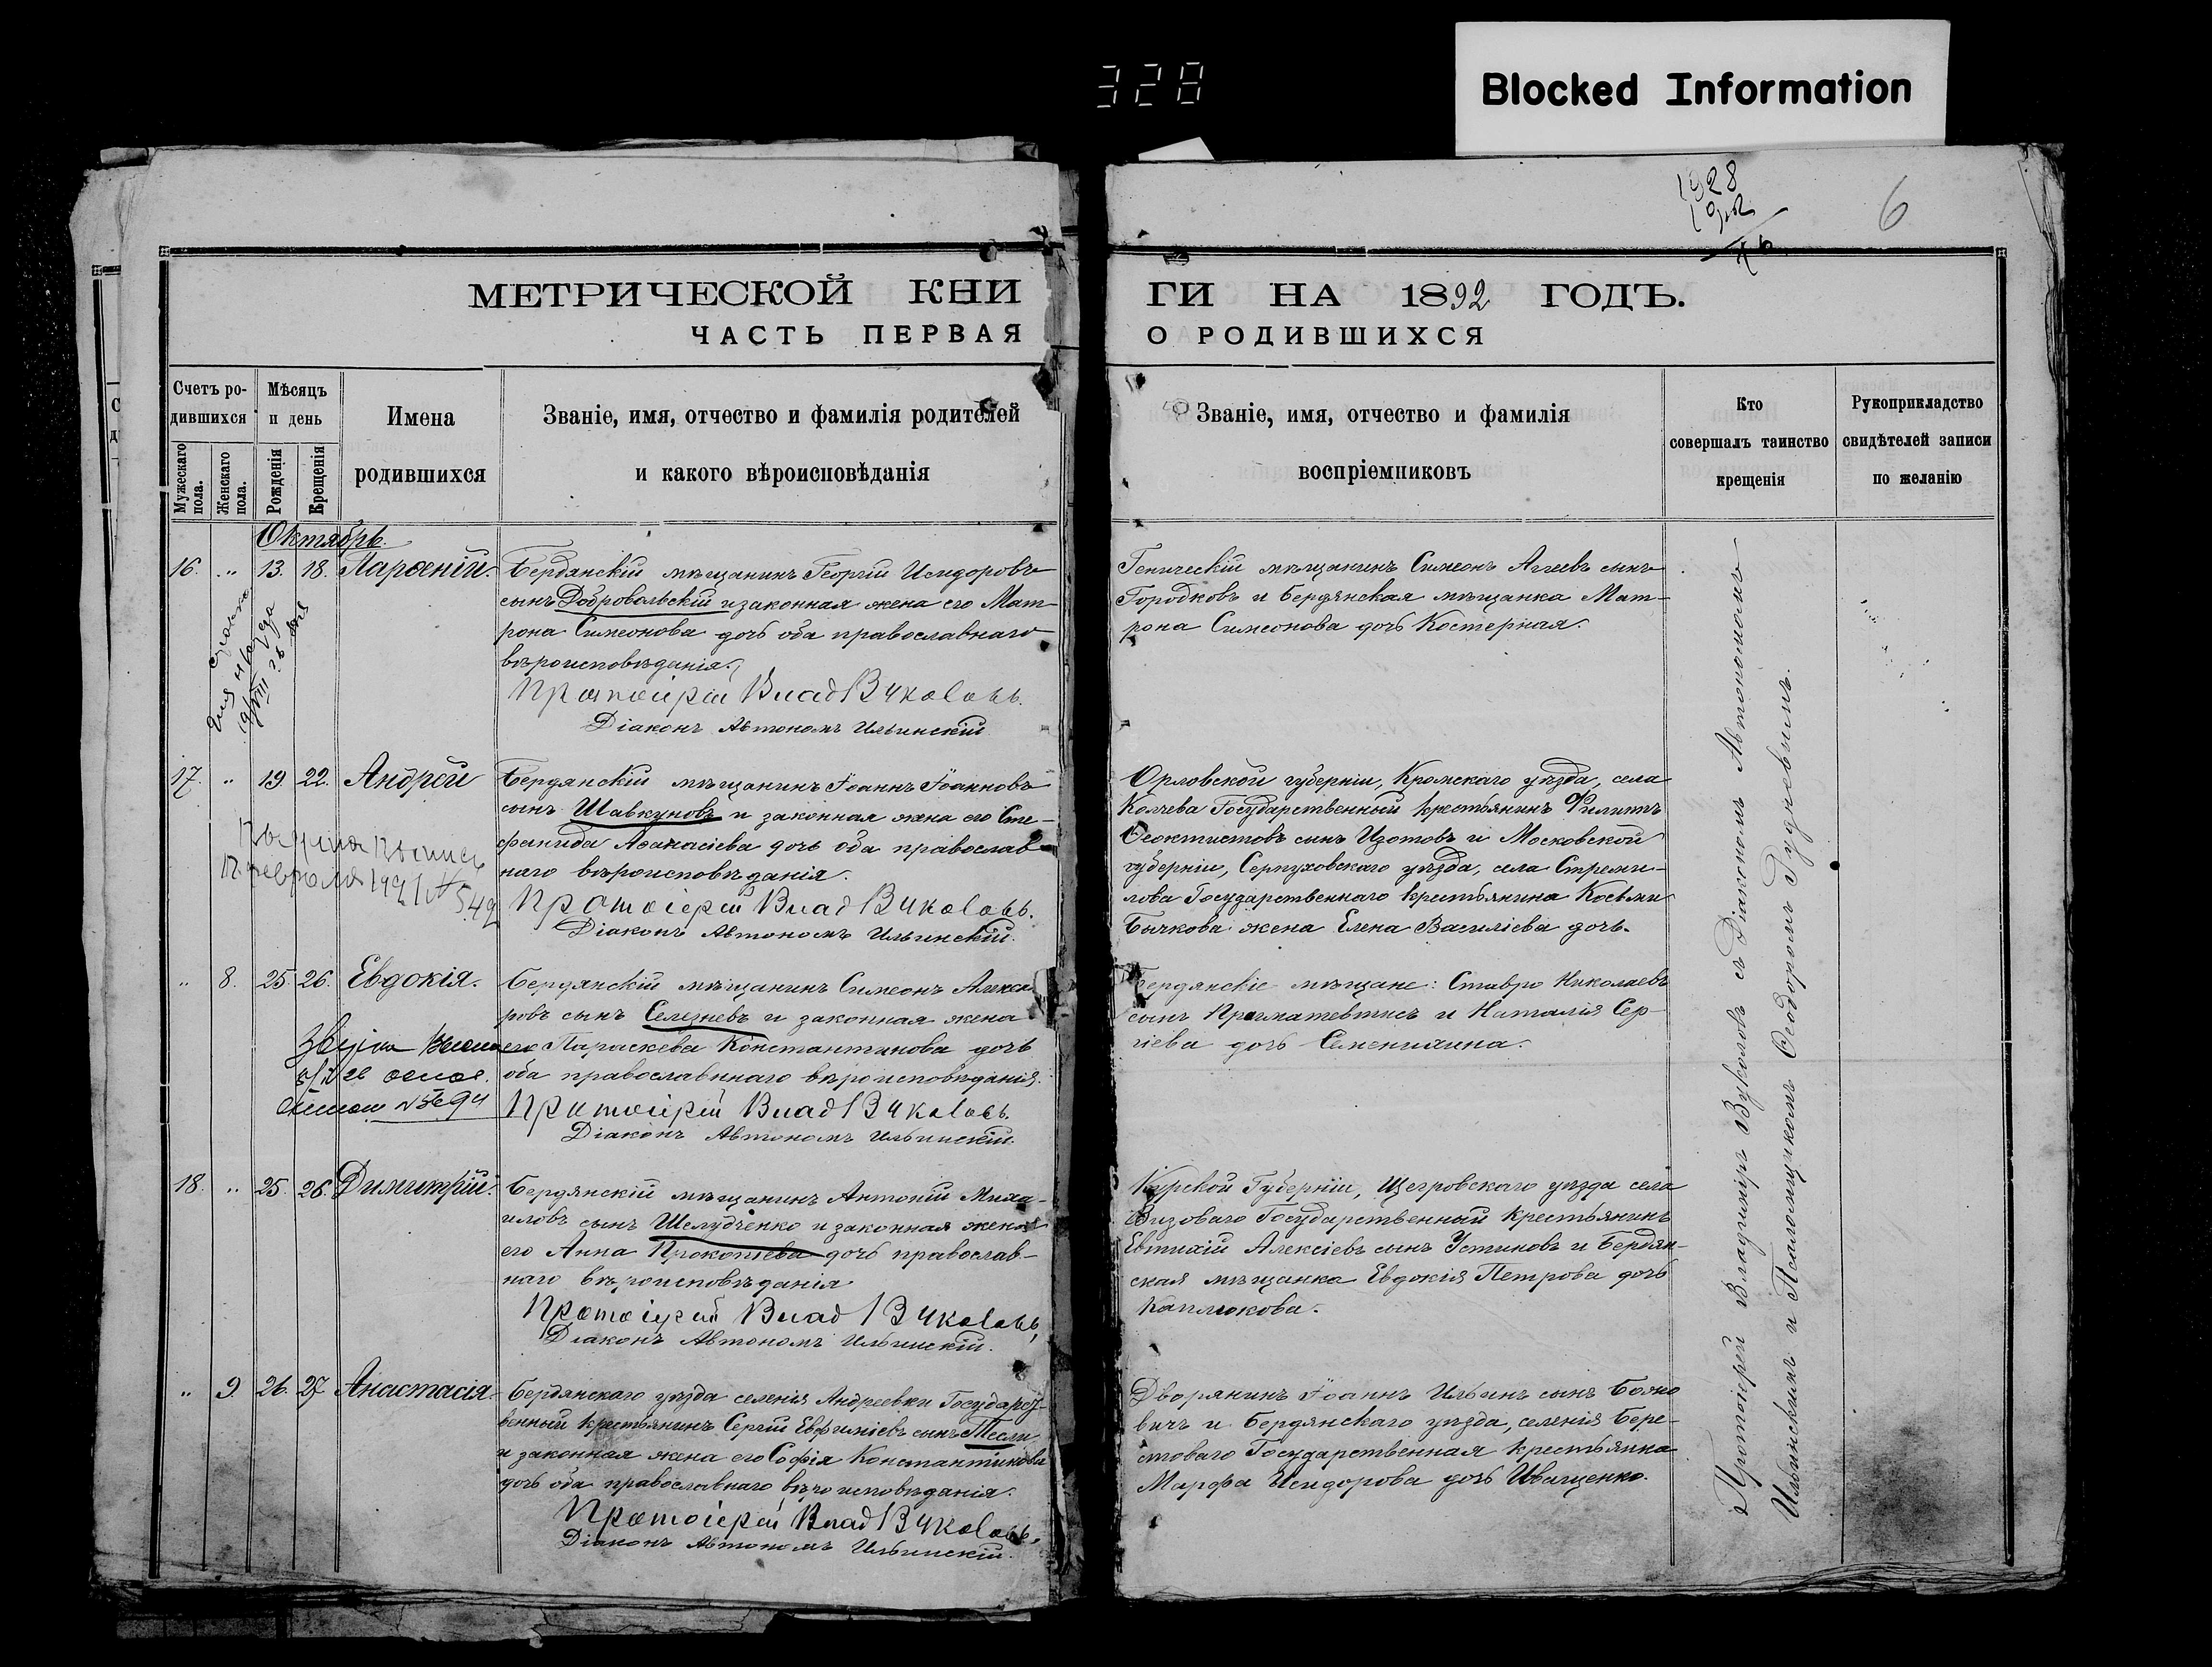 328
Blocked Information
6
МЕТРИЧЕСКОЙ КНИ
ЧАСТЬ ПЕРВАЯ
Счетъ ро-
дившихся
Мужескаго пола.
Женскаго пола.
Мѣсяцъ
и день
Рожденія
Крещенія
Имена
родившихся
Званіе, имя, отчество и фамилія родителей
и какого вѣроисповѣданія
Октябрь.
16. " 13. 18. Парѳеній.
Бердянскій мѣщанинъ Георгій Исидоровъ
сынъ Добровольскій и законная жена его Мат-
рона Симеонова дочь оба православнаго
вѣроисповѣданія.
Протоіерей Влад Вуколовъ.
Діаконъ Автономъ Ильинскій
17. " 19. 22. Андрей
Бердянскій мѣщанинъ Іоаннъ Іоанновъ
сынъ Шавкуновъ и законная жена его Сте-
фанида Аѳанасіева дочь оба православ-
наго вѣроисповѣданія.
Протоіерей Влад Вуколовъ.
Діаконъ Автономъ Ильинскій.
" 8. 25. 26. Евдокія.
Бердянскій мѣщанинъ Симеонъ
ровъ сынъ Селезневъ и законная жена
его Параскева Константинова дочь
оба православнаго вѣроисповѣданія.
Протоіерей Влад Вуколовъ.
Діаконъ Автономъ Ильинскій.
18. " 25. 26. Димитрій.
Бердянскій мѣщанинъ Антоній Миха-
иловъ сынъ Шелудченко и законная жена
его Анна Прокопіева дочь православ-
наго вѣроисповѣданія
Протоіерей Влад Вуколовъ,
Діаконъ Автономъ Ильинскій.
" 9. 26. 27 Анастасія.
Бердянскаго уѣзда селенія Андреевки Государст-
венный крестьянинъ Сергій Евфиміевъ сынъ Тесля
и законная жена его Софія Константинова
дочь оба православнаго вѣроисповѣданія.
Протоіерей Влад Вуколовъ.
Діаконъ Автономъ Ильинскій.
ГИ НА 1892 ГОДЪ.
О РОДИВШИХСЯ
Званіе, имя, отчество и фамилія
воспріемниковъ
Кто
совершалъ таинство
крещенія
Рукоприкладство
свидѣтелей записи
по желанію
Геническій мѣщанинъ Симеонъ Агеевъ сынъ
Городковъ и Бердянская мѣщанка Мат-
рона Симеонова дочь Костерная.
Орловской губерніи, Кромскаго уѣзда, села
Колчева Государственный крестьянинъ Филиппъ
Ѳеоктистовъ сынъ Изотовъ и Московской
губерніи, Серпуховскаго уѣзда, села Стреми-
лова Государственнаго крестьянина Косьмы
Бычкова жена Елена Василіева дочь.
Бердянскіе мѣщане: Ставро Николаевъ
сынъ и Наталія Сер-
гіева дочь
Курской Губерніи, Щегровскаго уѣзда села
Визоваго Государственный крестьянинъ
Евтихій Алексіевъ сынъ Устиновъ и Бердян-
ская мѣщанка Евдокія Петрова дочь
Каплюкова.
Дворянинъ Іоаннъ Ильинъ сынъ Бояно
вичъ и Бердянскаго уѣзда, селенія Бере-
стоваго Государственная крестьянка
Марфа Исидорова дочь Иващенко.
Протоіерей Владиміръ Вуколовъ съ Діакономъ Автономомъ
Ильинскимъ и Псаломщикомъ Ѳеодоромъ Гудневымъ.